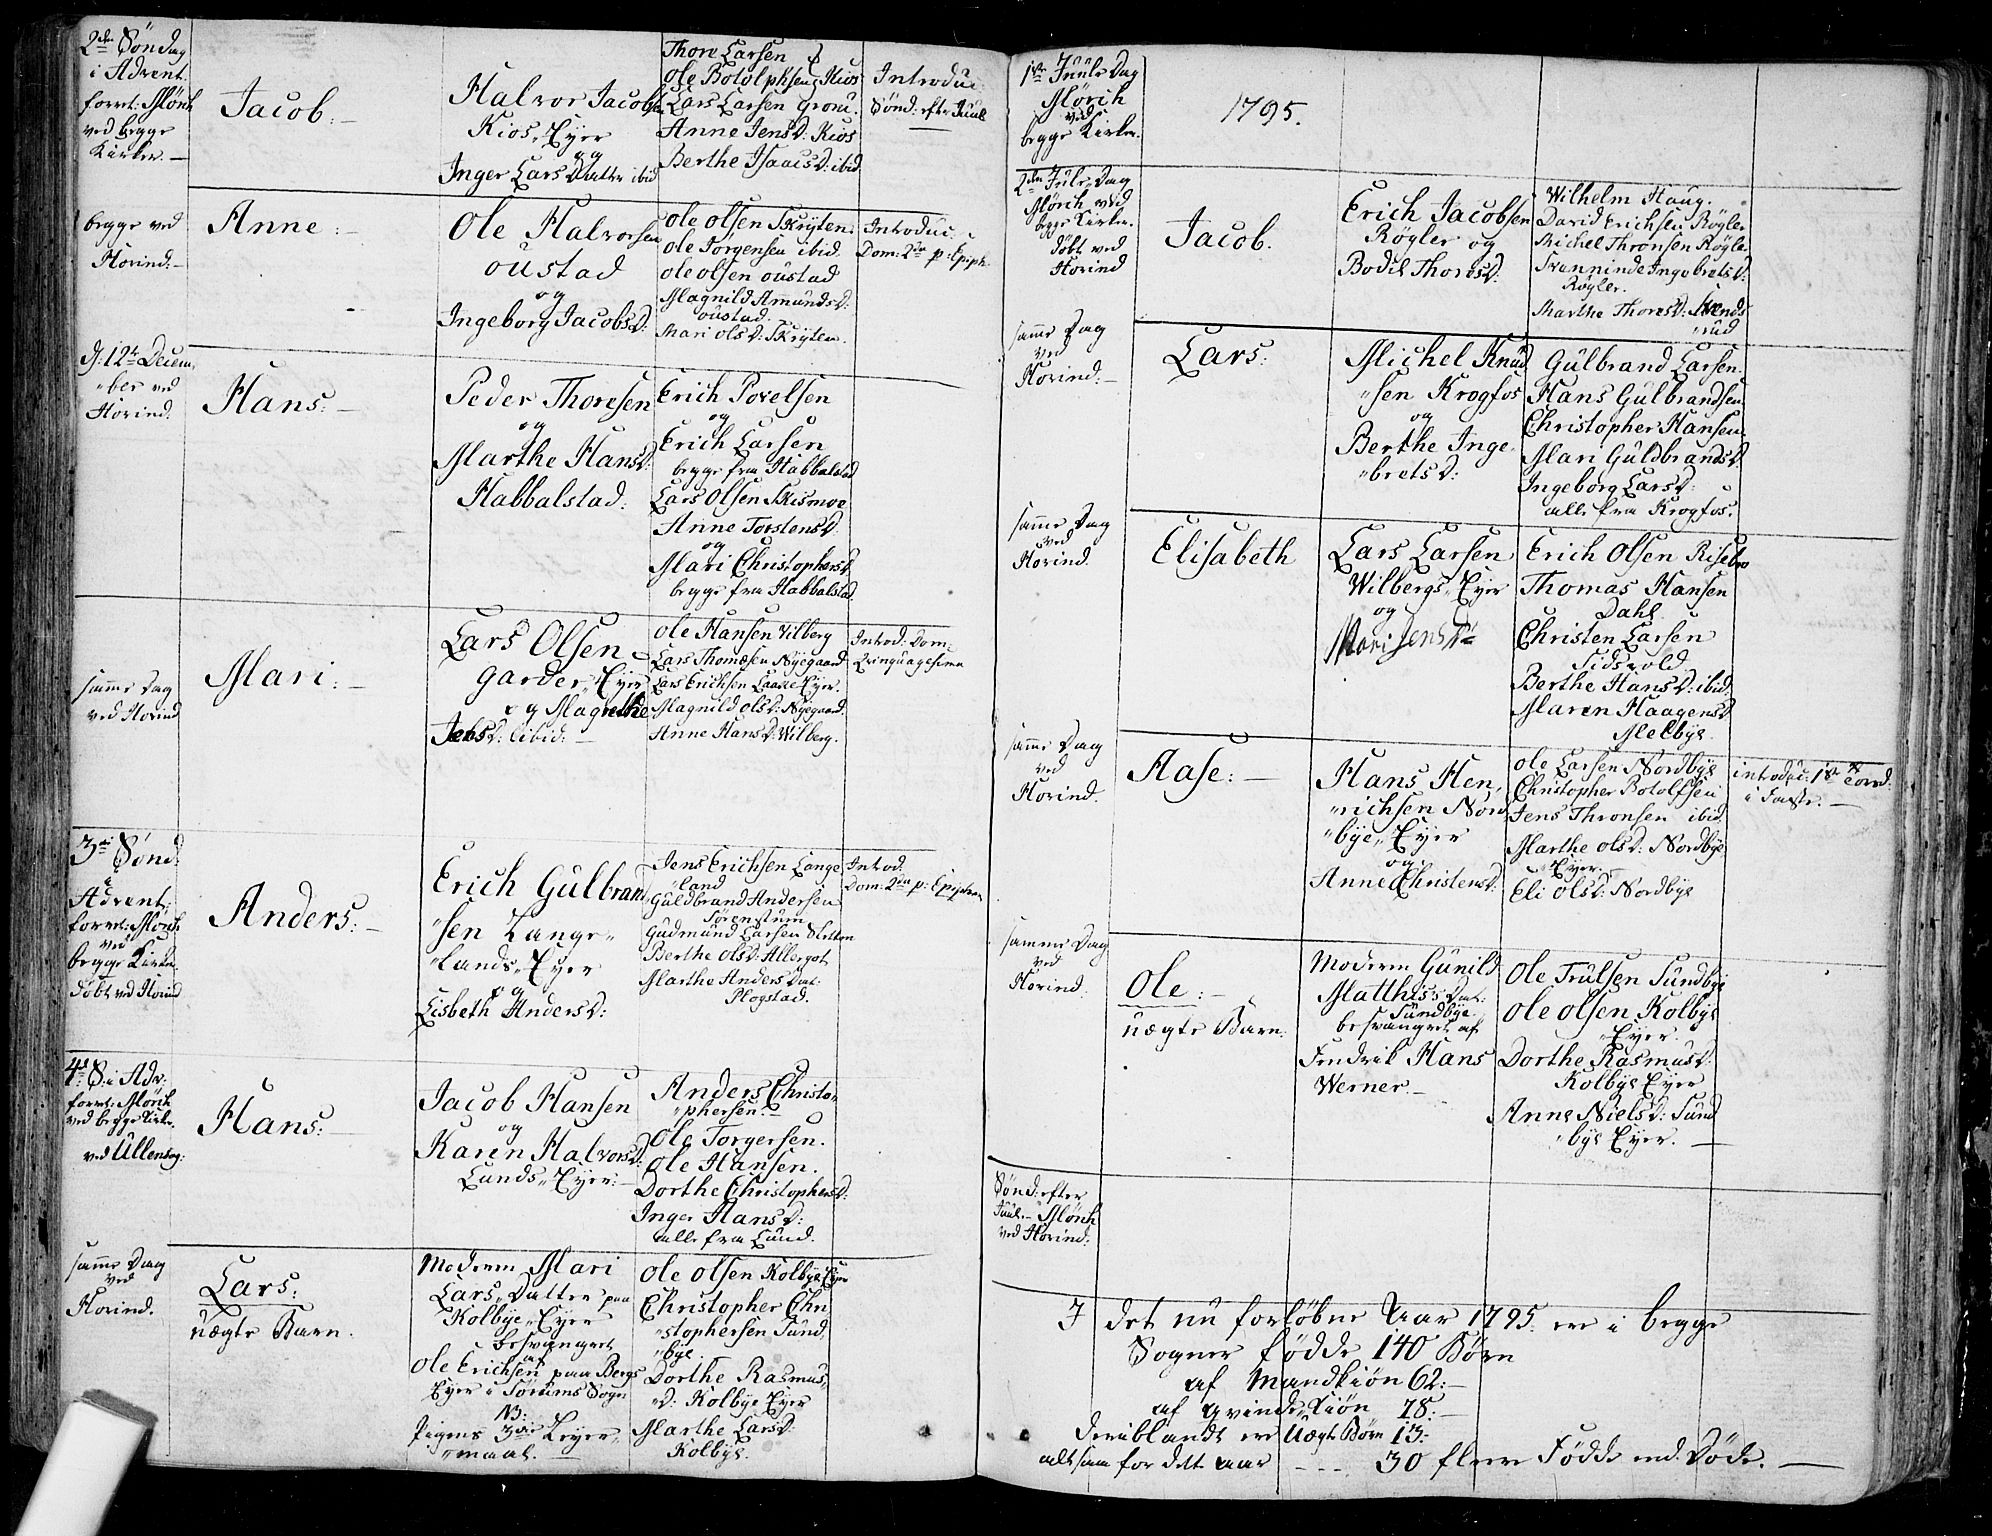 2den Söndag
i Advent.
forret: Mørch
ved begge
Kirker. —
Jacob: —
Halvor Jacobsen
Kios, Eyer
og
Inger Lars Datter ibid
Thore Larsen
Ole Botolphsen Kios
Lars Larsen Gronv.
Anne Jensd: Kios
Berthe Isaacsd: ibid
Introduc:
Sønd: efter Juul
begge ved
Hovind: —
Anne: —
Ole Halvorsen
Oustad
og
Ingeborg Jacobsd:
Ole Olsen Skryten
Ole Torgensen ibid
Ole Olsen Oustad
Magnild Amundsd:
Oustad.
Mari Olsd: Skryten.
Introduc.
Dom: 2da p: Epiph.
D: 12te Decem,
"ber ved
Hovind.
Hans: —
Peder Thoresen
og
Marthe Hansd:
Habbalstad.
Erich Povelsen
og
Erich Larsen
begge fra Habbalstad
Lars Olsen Skismoe
Anne Torstensd:
og
Mari Christophersd.
begge fra Habbalstad.
samme Dag
ved Hovind
Mari: —
Lars Olsen
Garder, Eyer
og Magrethe
Jensd: ibid: —
Ole Hansen Vilberg
Lars Thomæsen Nyegaard
Lars Erichsen Laache Eyer.
Magnild Olsd: Nyegaard.
Anne Hansd: Wilberg.
Introd: Dom:
Qvinquagesima
3die Sønd:
i
Advent:
forret: Mørch
ved
begge Kirker.
døbt ved Hovind
Anders: —
Erich Gulbrand,
"sen Lange,,
"lands, Eyer
og
Lisbeth Andersd:
Jens Erichsen Lange
"land
Guldbrand Andersen
Sørenstum
Gudmund Larsen Sletten
Berthe Olsd: Allergot
Marthe Anders Dat:
Plogstad.
Introd.
Dom: 2da p: Epiphan
4de S: i Adv:
forret: Mørch
ved begge Kirker.
ved Ullensag:
Hans: —
Jacob Hansen
og
Karen Halvorsd:
Lunds, Eyer: —
Anders Christo,,
"phersen. —
Ole Torgersen.
Ole Hansen.
Dorthe Christophersd:
Inger Hansd:
alle fra Lund.
samme Dag
ved
Hovind.
Lars:
uægte Barn.
Moderen Mari
Lars, Datter paa
Kolbye, Eyer
besvangret
af
Ole Erichsen paa Bergs
Eyer i Sørums Sogn
NB:
Pigens 3die Leyer,,
"maal. —
Ole Olsen Kolbye Eyer
Christopher Chri
"stophersen Sund,
"bye.
Dorthe Rasmus,
"d: Kolbye Eyer
Marthe Larsd:
Kolbye.
1ste Juule Dag
Mörch
ved
begge Kirker.
1795.
2den Jule, Dag
Mørch ved
begge Kirker.
døbt ved
Hovind
Jacob.
Erich Jacobsen
Røgler og
Bodil Thoresd:
Wilhelm Haug.
David Erichsen Røgler
Michel Thronsen Røgler
Svanninde Ingebretsd:
Røgler.
Marthe Thoresd: Svends
"rud
samme Dag
ved
Hovind: —
Lars:
Michel Knud
"sen Krogfos
og
Berthe Inge
"bretsd:
Gulbrand Larsen.
Hans Gulbrandsen
Christopher Hansen.
Mari Guldbrandsd.
Ingeborg Larsd:
alle fra Krogfos.
samme Dag
ved
Hovind.
Elisabeth
Lars Larsen
Wilbergs, Eyer
og
Mari Jens Dr
Erich Olsen Risebro
Thomas Hansen
Dahl
Christen Larsen
Sidsvold
Berthe Hansd: ibid.
Maren Haagensd
Melbye.
samme Dag
ved
Hovind.
Aase: —
Hans Hen,
"richsen Nord
"bye, Eyer
og
Anne Christensd:
Ole Larsen Nordbye
Christopher Botolfsen
Jens Thronsen ibid.
Marthe Olsd: Nordbye
Eyer.
Eli Olsd: Nordbye
i Faste. —
samme Dag
ved
Hovind.
Ole: —
uægte Barn.
Moderen Gunild
Matthis Dat:
Sundbye
besvangret af
Fredrik Hans
Werner. —
Ole Trulsen Sundbye
Ole Olsen Kolbye
Eyer.
Dorthe Rasmusd:
Kolbye Eyer
Anne Nielsd: Sund
"bye Eyer. —
Sønd: efter
Juul. — Mørch
ved Hovind:
I det nu forløbne Aar 1795. ere i begge
Sogner fødde 140 Børn
af Mandkiøn 62: —
af Qvinde, Kiøn 78: —
deriblandt ere Uægte Børn 13:
altsaa for dett aar — — — 30 flere Fødde end Døde. —